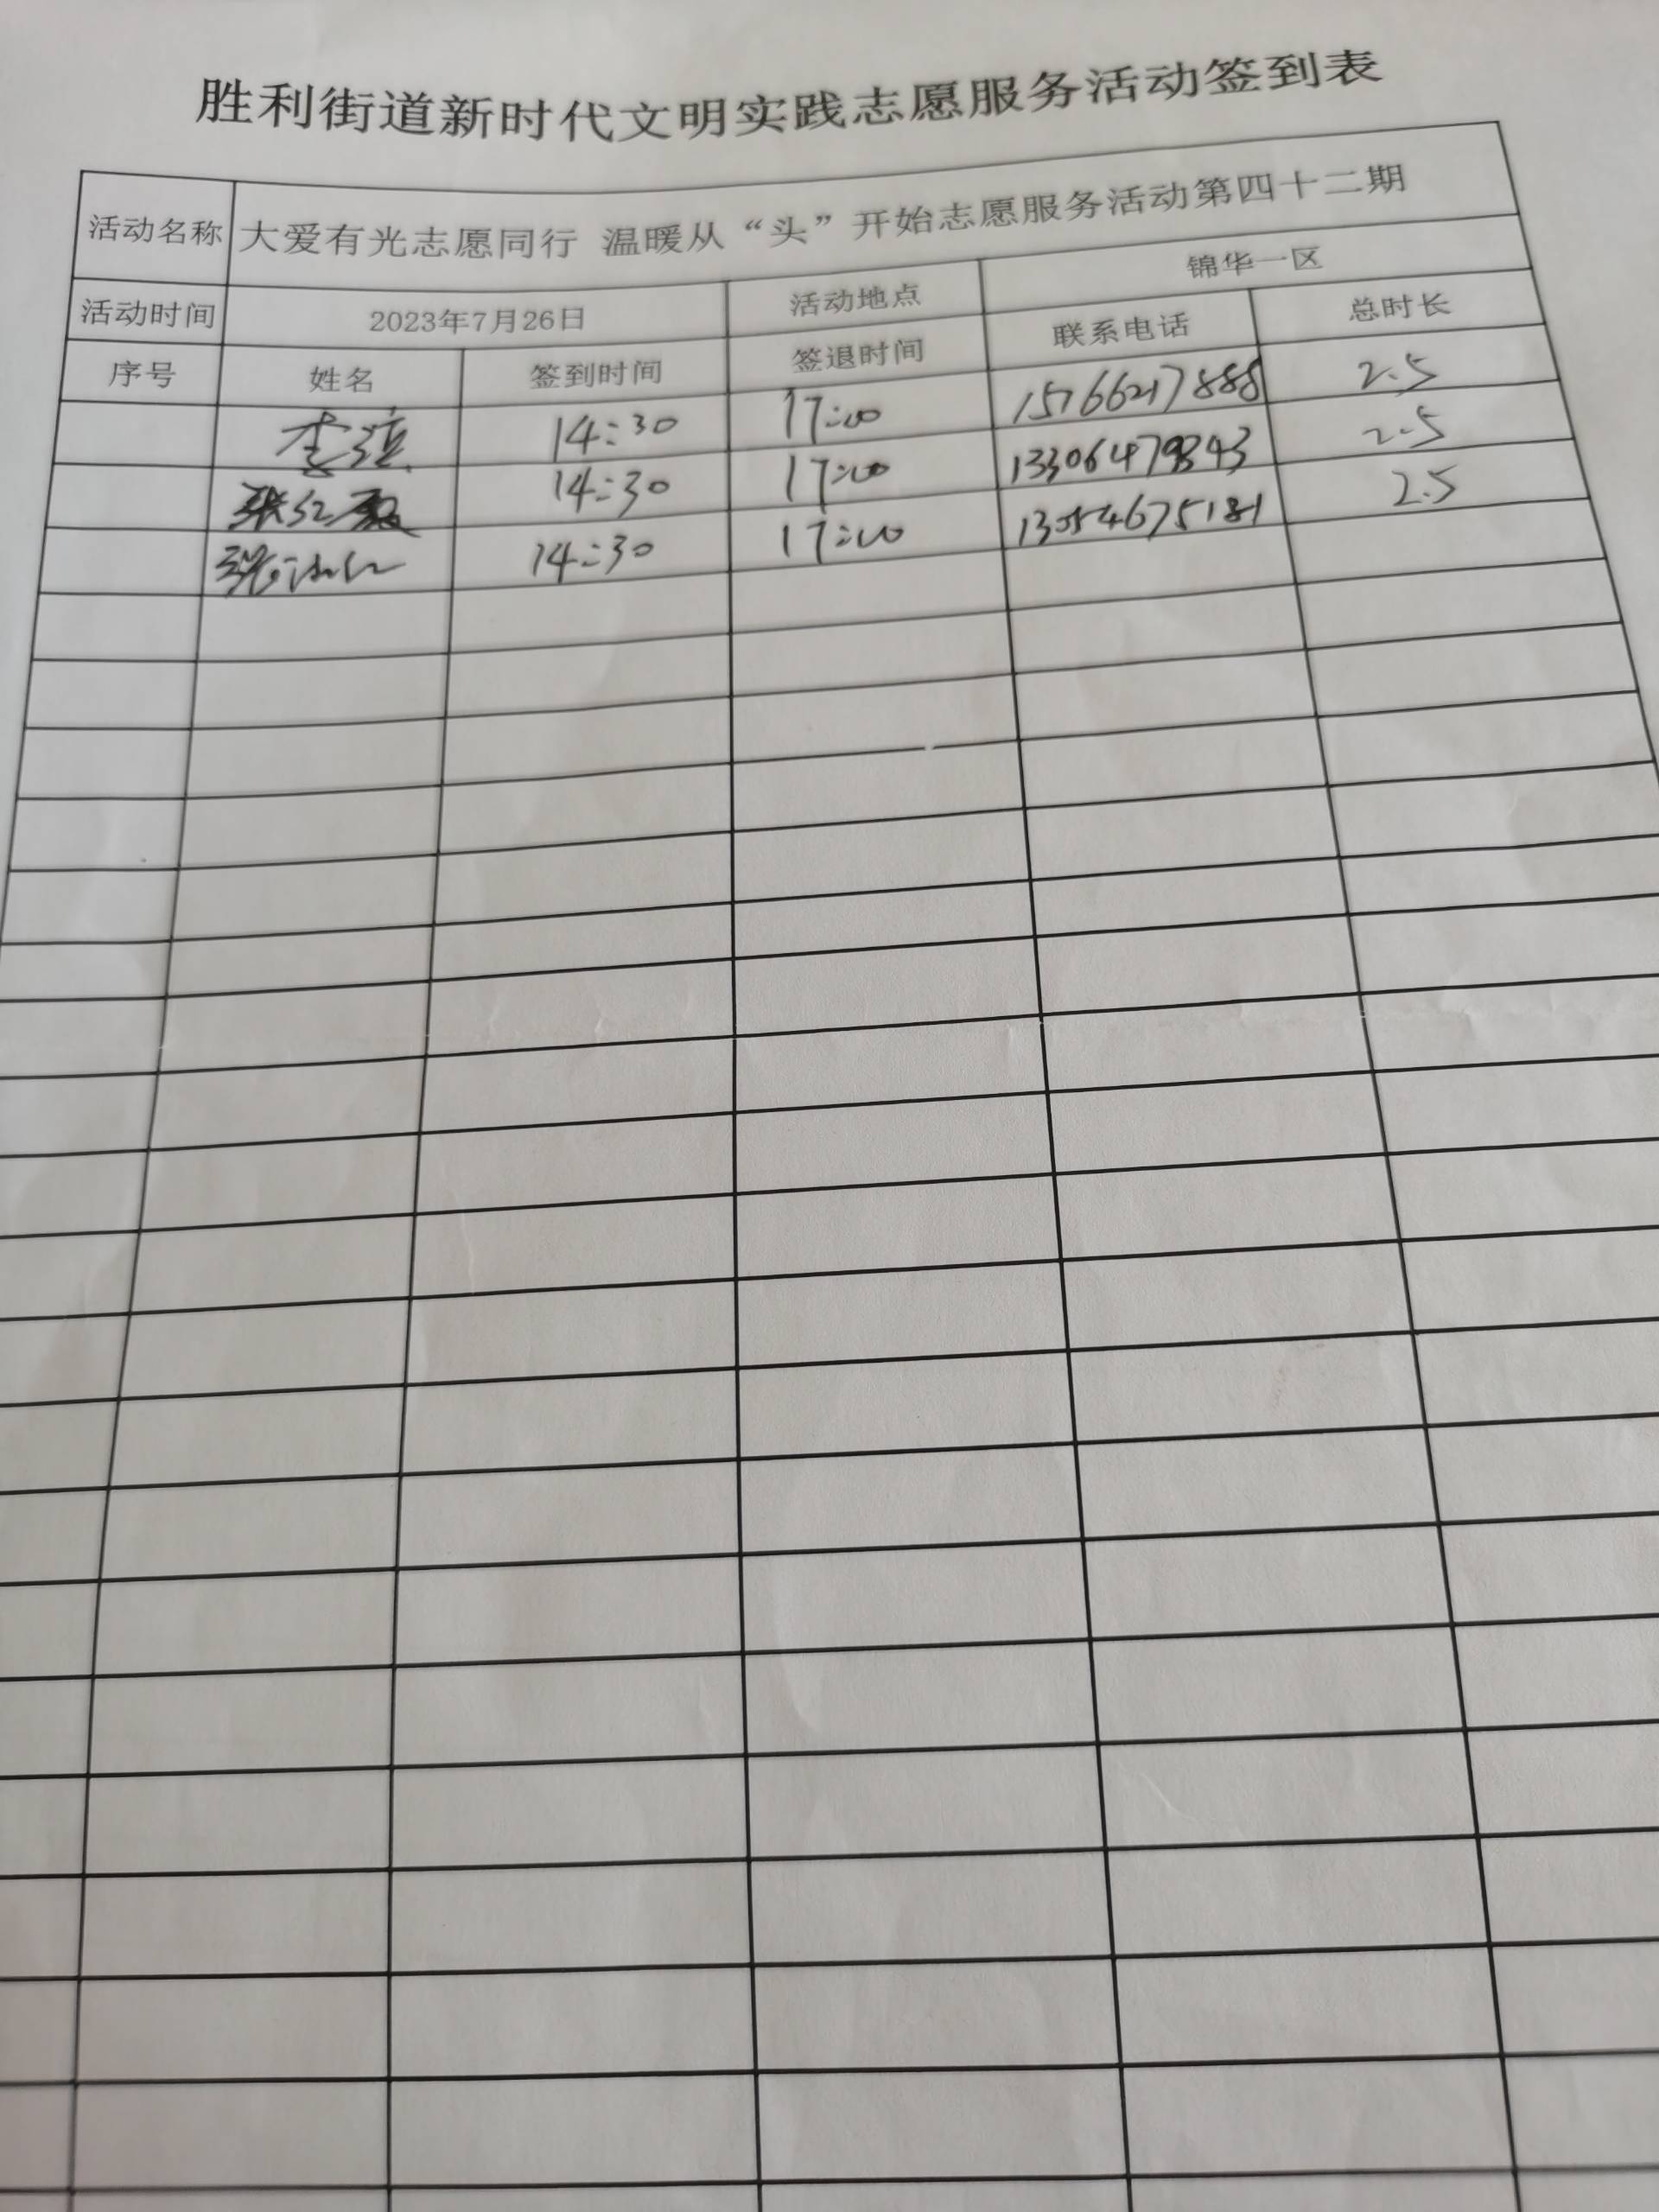 胜利街道新时代文明实践志愿服务活动签到表
活动名称 大爱有光志愿同行 温暖从“头”开始志愿服务活动第四十二期
活动时间 2023年7月26日 活动地点 锦华一区
序号 姓名 签到时间 签退时间 联系电话 总时长
李 14:30 17:00 15766217888 2.5
张红霞 14:30 17:00 2.5
张 14:30 17:00 13054675181 2.5